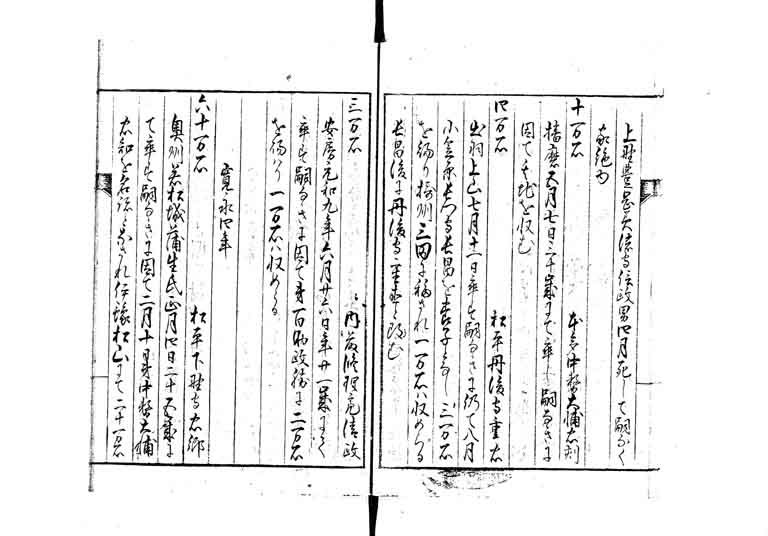 上野豊岡大隅守信政男四月死して嗣なく
家絶ゆ
十万石 本多中務大輔忠刻
播磨五月七日三十一歳にて卒し嗣なきに
因て其地を収む
四万石 松平丹後守重忠
出羽上山七月十二日卒す嗣なきに仍て八月
小笠原長門守長昌を養子とし三万石
を賜り摂州三田に移され一万石ハ収めらる
長昌後に丹後守重直と改む
三万石 内藤修理亮清政
安房元和九年六月廿六日年廿一歳にて
卒す嗣なきに因て弟百助政勝に二万石
を賜ハり一万石ハ収めらる
寛永四年
六十万石 松平下野守忠郷
奥州若松城蒲生氏正月四日二十五歳に
て卒す嗣なきに因て二月十日弟中務大輔
忠知を召され伊豫松山にて二十万石